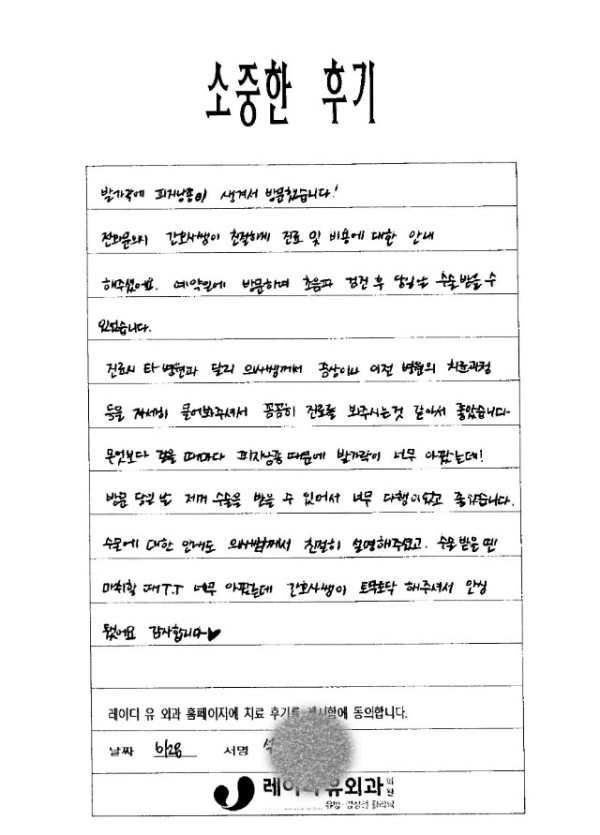 소중한 후기
발가락에 피지낭종이 생겨서 방문했습니다!
전화문의시 간호사쌤이 친절하게 진료 및 비용에 대한 안내
해주셨어요. 예약일에 방문하며 초음파 검진 후 당일날 수술 받을 수
있었습니다.
진료시 타 병원과 달리 의사쌤께서 증상이나 이전 병원의 치료과정
등을 자세히 물어봐주셔서 꼼꼼히 진료를 봐주시는것 같아서 좋았습니다.
무엇보다 걸을 때마다 피지낭종 때문에 발가락이 너무 아팠는데!
방문 당일 날 제꺼 수술을 받을 수 있어서 너무 다행이었고 좋았습니다.
수술에 대한 안내도 의사쌤께서 친절히 설명해주셨고. 수술 받을 땐!
마취할 때 T.T 너무 아팠는데 간호사쌤이 토닥토닥 해주셔서 안심
됐어요 감사합니다♥
레이디 유 외과 홈페이지에 치료 후기를 게시함에 동의합니다.
날짜 6/28 서명 석
레이디유외과의원
유방·갑상선 클리닉